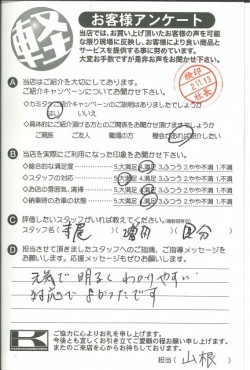 軽
お客様アンケート
当店では、お買い上げ頂いたお客様の声を可能
な限り現場に反映し、お客様により良い商品と
サービスを提供する事に努めています。
大変お手数ですが是非お声をお聞かせ下さい。
検印
2.11.13
社長
A 当店はご紹介を大切にしております。
ご紹介キャンペーンについてお聞かせ下さい。
はい いいえ
◇具体的にご紹介頂ける方とのご関係をお聞かせ頂けますでしょうか
ご親族 ご友人 職場の方 機会があれば紹介したい
B 当店を実際にご利用になった印象をお聞かせ下さい。
◇総合的な満足度 5.大満足 4.満足 3.ふつう 2.やや不満 1.不満
◇スタッフの対応 5.大満足 4.満足 3.ふつう 2.やや不満 1.不満
◇お店の雰囲気、清掃 5.大満足 4.満足 3.ふつう 2.やや不満 1.不満
◇納車時のお車の状態 5.大満足 4.満足 3.ふつう 2.やや不満 1.不満
C 評価したいスタッフがいれば教えてください。
スタッフ名
D 担当させて頂きましたスタッフへのご指摘、ご指導メッセージを
お願いします。応援メッセージもぜひお願いします。
元気で明るくわかりやすい
対応でよかったです
ご協力に心よりお礼を申し上げます。
今後とも宜しくお引き立てご愛顧の程お願い申し上げます。
またのご来店を心からお待ちしております。
担当( 山根 )